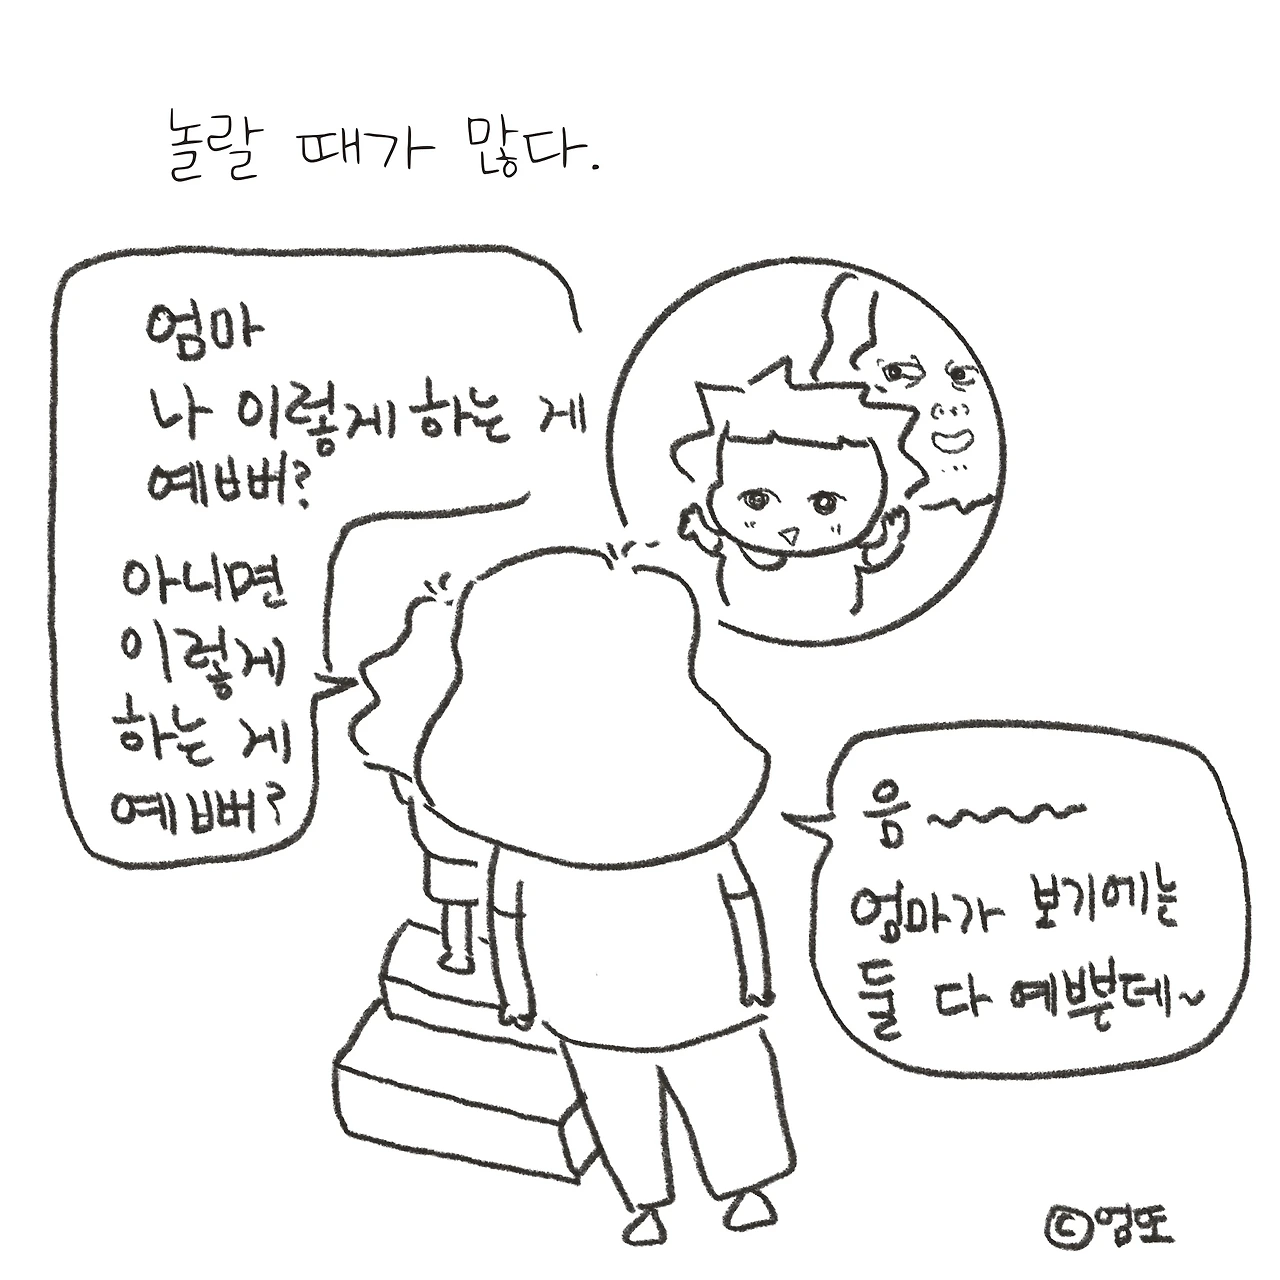 놀랄 때가 많다.
엄마
나 이렇게 하는 게
예뻐?
아니면
이렇게
하는 게
예뻐?
음~~~~
엄마가 보기에는
둘 다 예쁜데~
©엄또